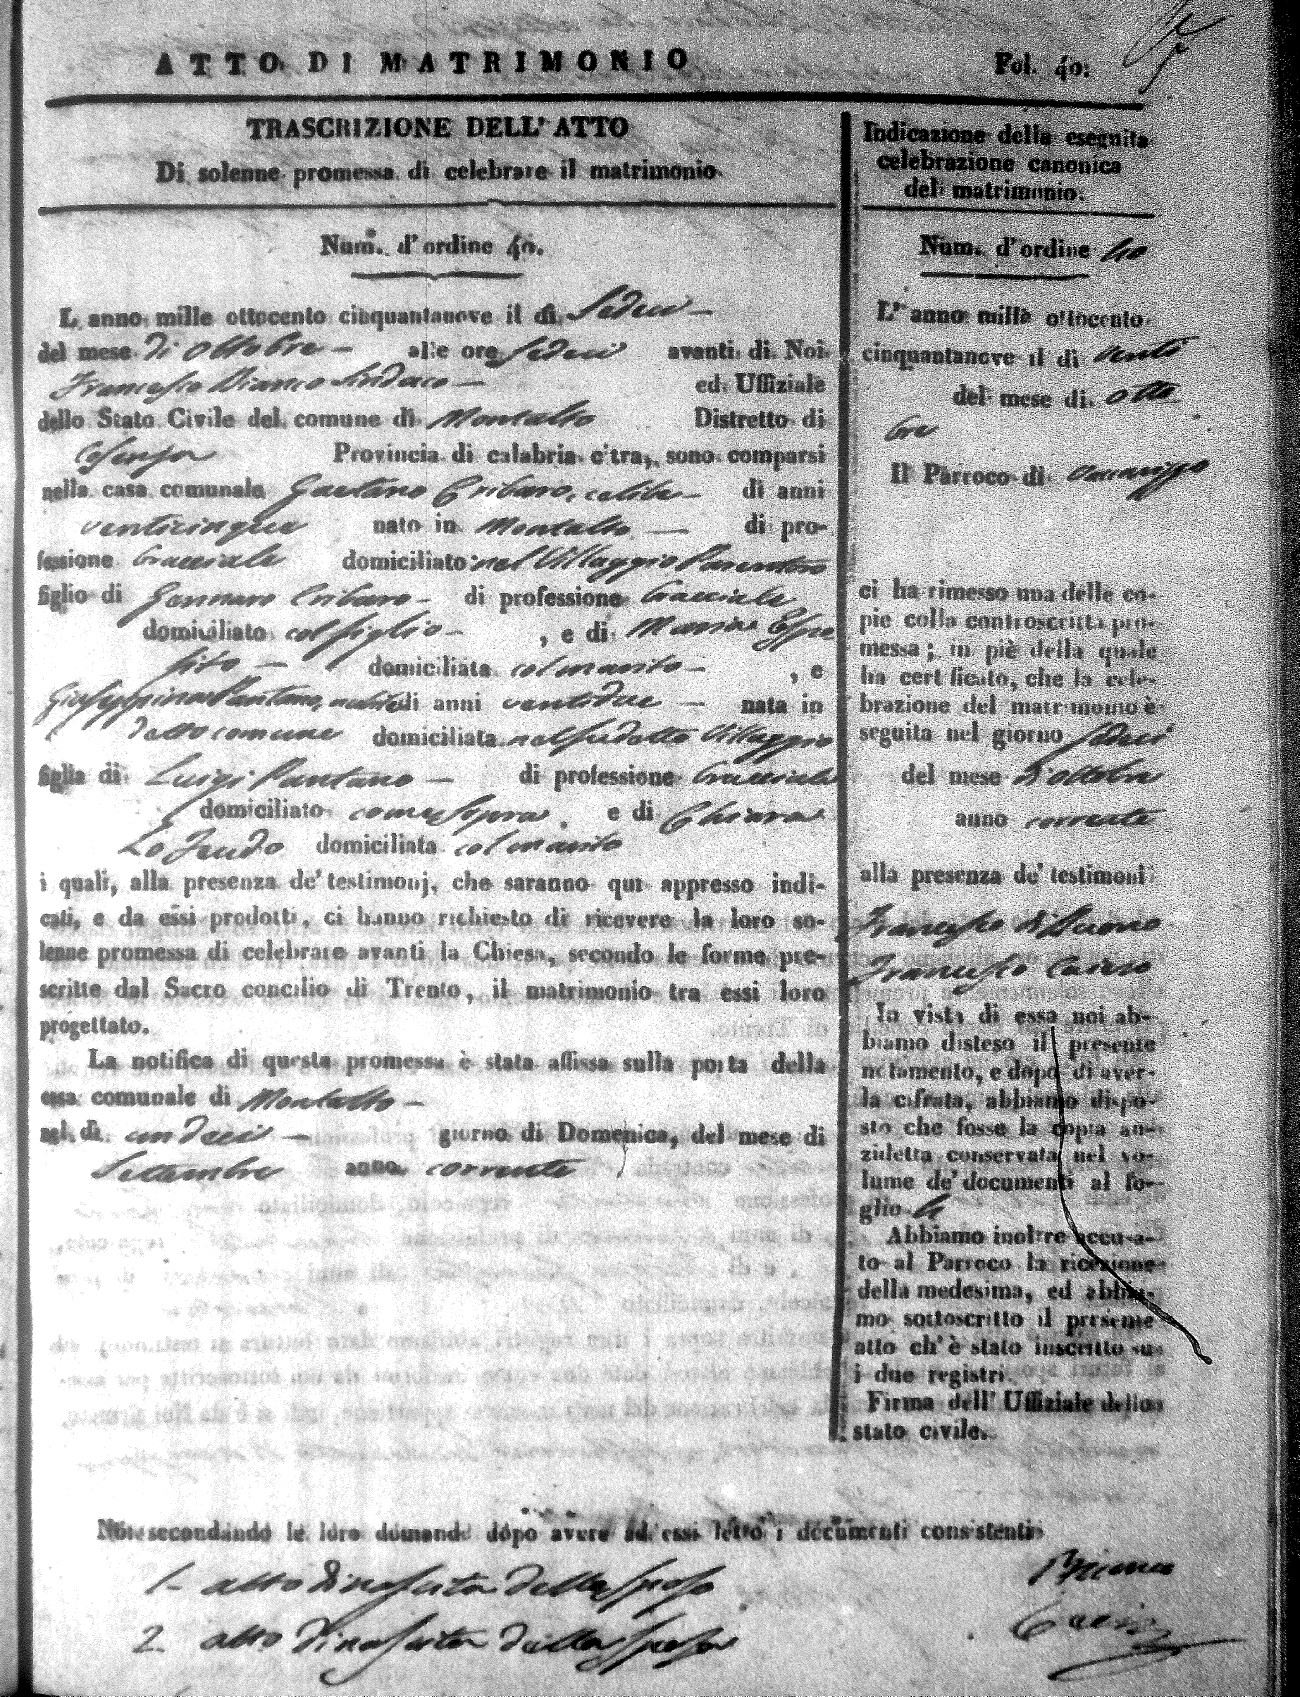 ATTO DI MATRIMONIO
Fol. 40.
TRASCRIZIONE DELL' ATTO
Di solenne promessa di celebrare il matrimonio
Num. d'ordine 40.
L anno mille ottocento cinquantanove il dì Sedeci
del mese di Ottobre alle ore sedeci avanti di Noi
Francesco Bianco Sindaco ed Uffiziale
dello Stato Civile del comune di Montalto Distretto di
Cosenza Provincia di calabria c'tra, sono comparsi
nella casa comunale Gaetano Cribaro, celibe di anni
venticinque nato in Montalto di pro-
fessione bracciale domiciliato nel Villaggio Parantoro
figlio di Gennaro Cribaro di professione bracciale
domiciliato col figlio , e di Maria Espo
sito domiciliata col marito , e
Giuseppina Pantano, nubile di anni ventidue nata in
detto comune domiciliata nel sudetto Villaggio
figlia di Luigi Pantano di professione bracciale
domiciliato come sopra , e di Chiara
Lo Feudo domiciliata col marito
i quali, alla presenza de' testimonj, che saranno qui appresso indi-
cati, e da essi prodotti, ci hanno richiesto di ricevere la loro so-
lenne promessa di celebrare avanti la Chiesa, secondo le forme pre-
scritte dal Sacro concilio di Trento, il matrimonio tra essi loro
progettato.
La notifica di questa promessa è stata affissa sulla porta della
casa comunale di Montalto
nel dì undeci giorno di Domenica, del mese di
Settembre anno corrente
Indicazione della eseguita
celebrazione canonica
del matrimonio.
Num. d'ordine 40
L' anno mille ottocento
cinquantanove il di venti
del mese di otto
bre
Il Parroco di
ci ha rimesso una delle co-
pie colla controscritta pro-
messa; in piè della quale
ha certificato, che la cele-
brazione del matrimonio è
seguita nel giorno sedeci
del mese d'ottobre
anno corrente
alla presenza de' testimoni
Francesco
Francesco Cairo
In vista di essa noi ab-
biamo disteso il presente
notamento, e dopo di aver-
la cifrata, abbiamo dispo-
sto che fosse la copia an-
zidetta conservata nel vo-
lume de' documenti al fo-
glio 4
Abbiamo inoltre accusa-
to al Parroco la ricezione
della medesima, ed abbia-
mo sottoscritto il presente
atto ch' è stato inscritto su
i due registri.
Firma dell' Uffiziale dello
stato civile.
Noi secondando le loro domande dopo avere ad essi letto i documenti consistenti
1. atto di nascita dello sposo
2. atto di nascita della sposa
Bianco